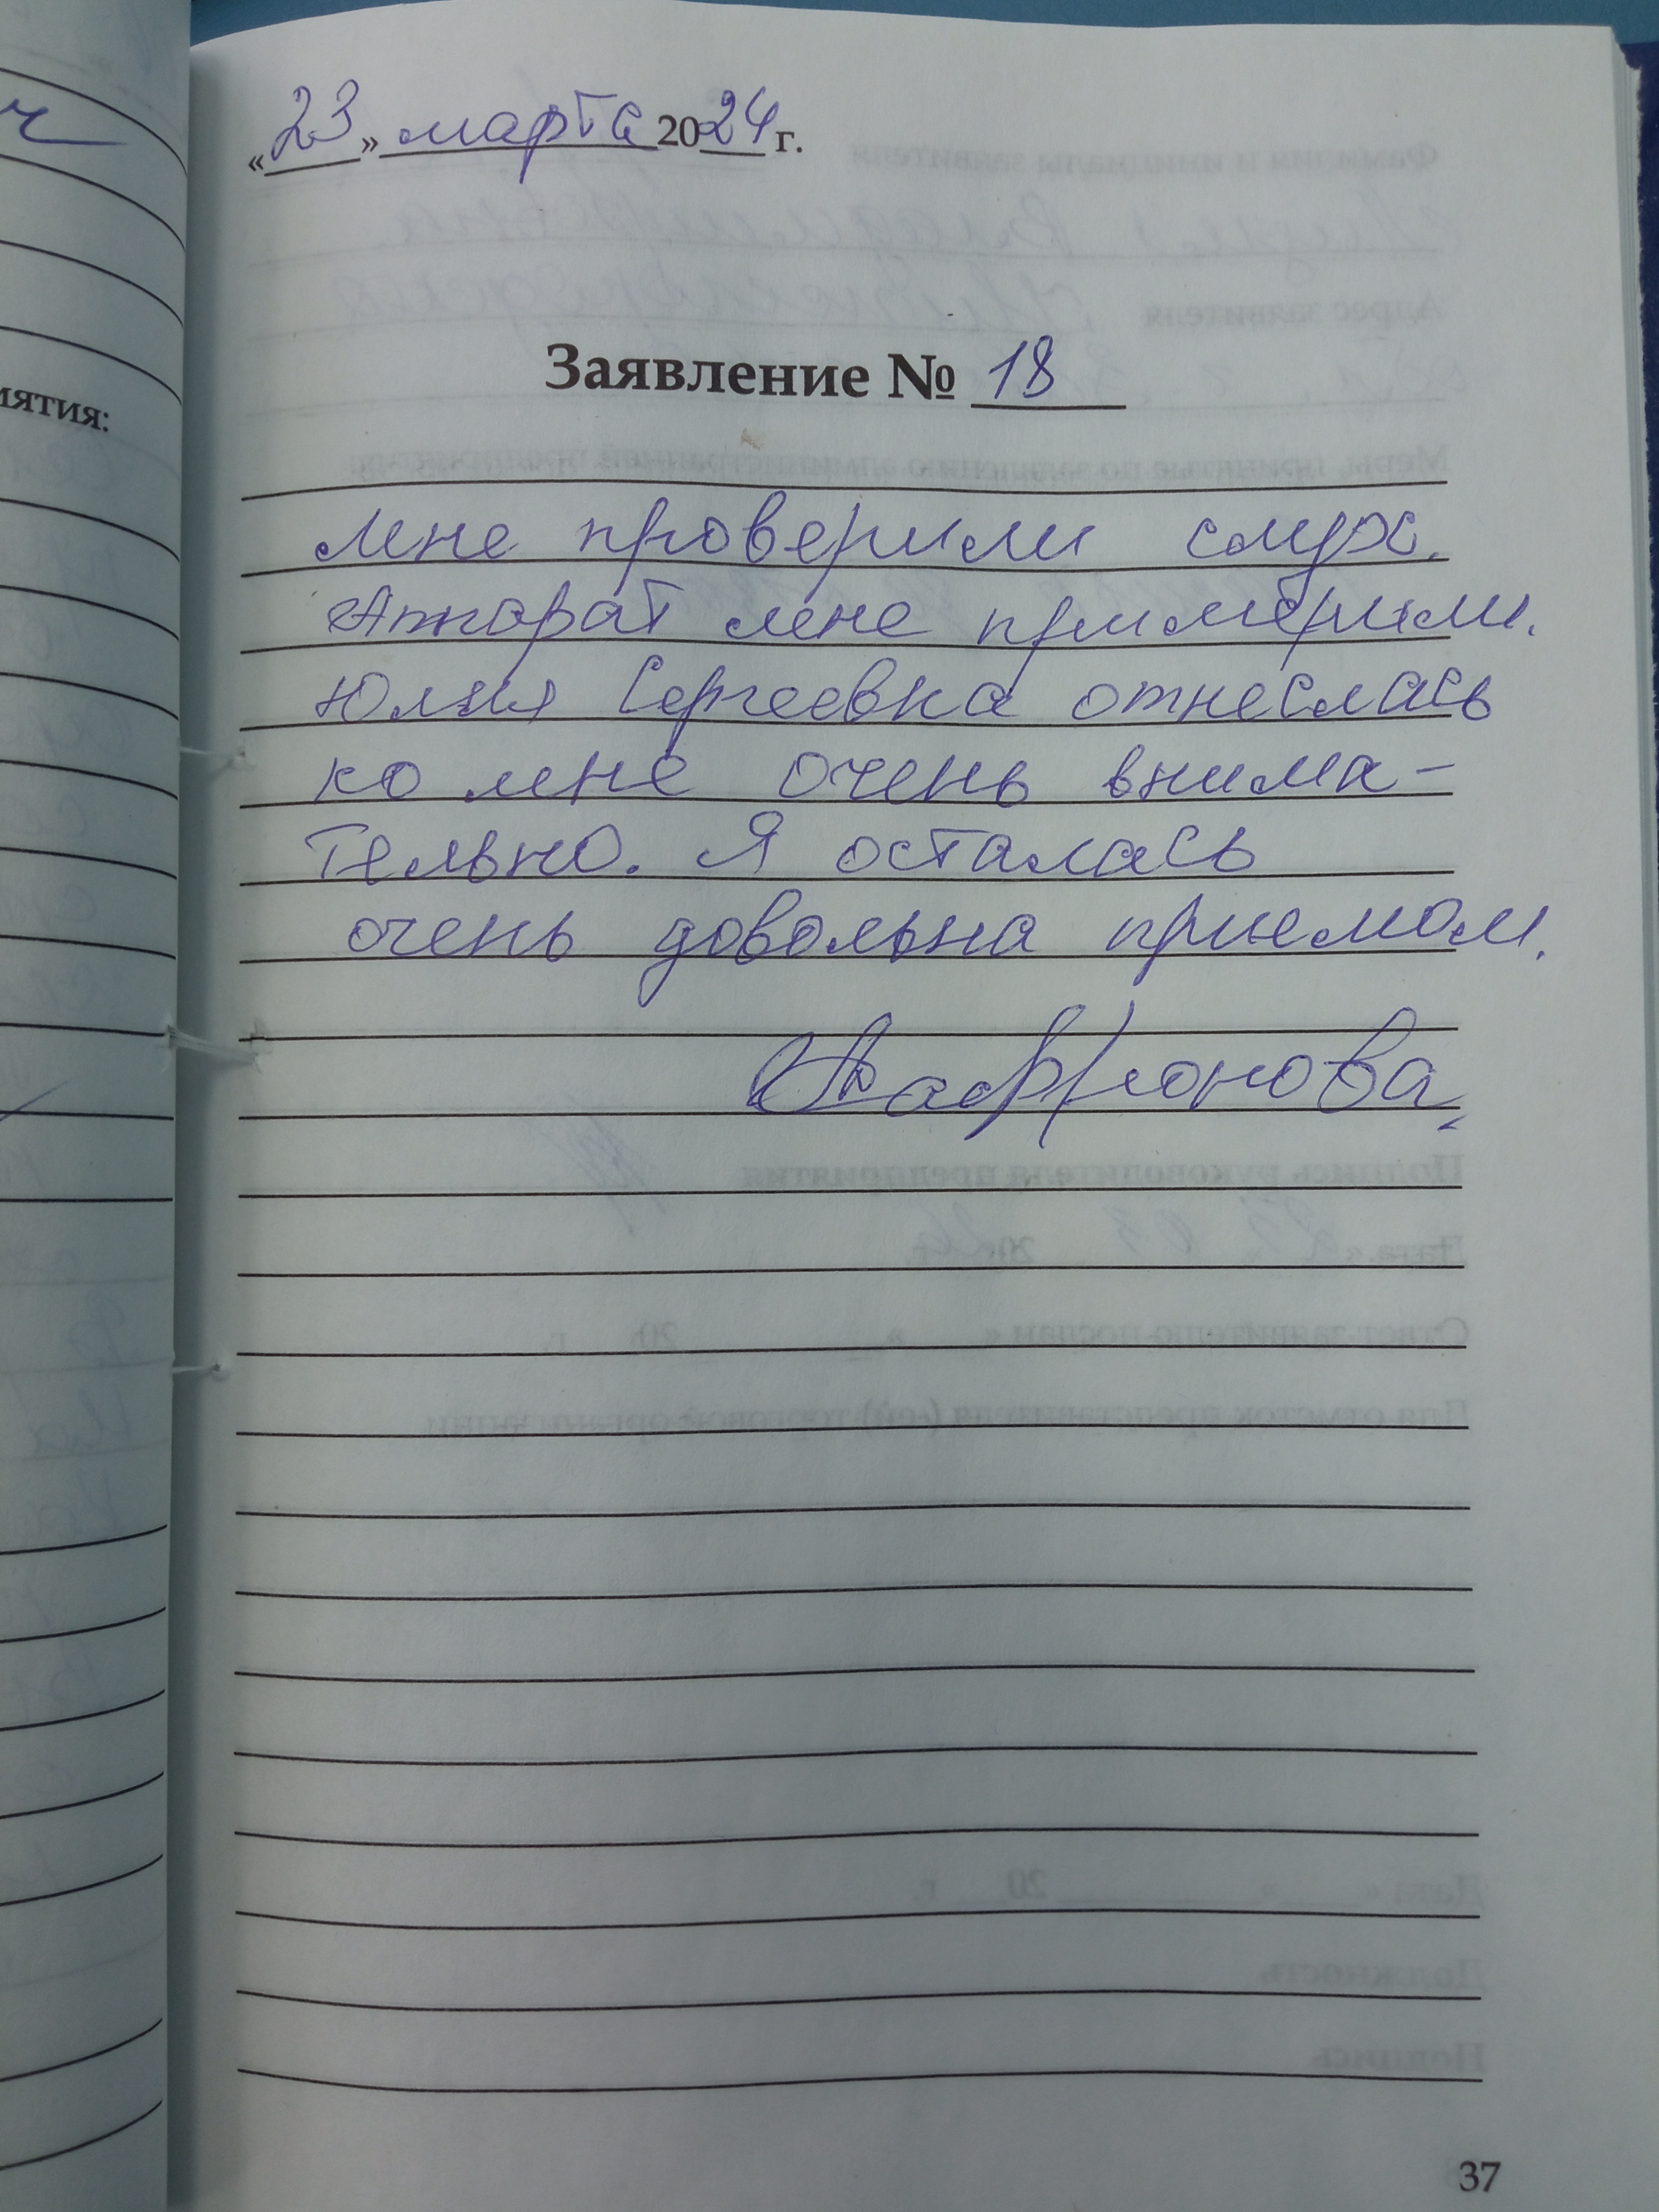 «23» марта 2024 г.
Заявление № 18
мне проверили слух.
Аппарат мне примерили.
Юлия Сергеевна отнеслась
ко мне очень внима-
тельно. Я осталась
очень довольна приемом.
иятия:
37